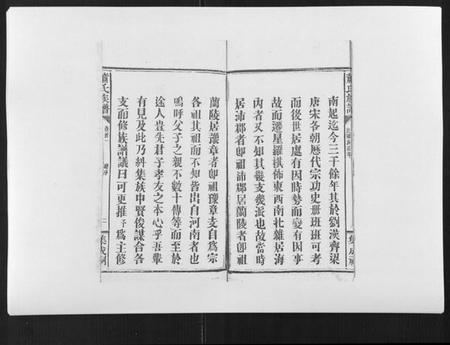 南起迄今三千餘年其於劉漢齊梁
唐宋各朝歷代宗功史冊班班可考
而後世居處有因時勢而變有因事
故而遷星羅棋佈東西南北雜居海
內者又不知其幾支幾派也故當時
居沛郡者卽祖沛郡居蘭陵者卽祖
蘭陵居豫章者卽祖豫章支自為宗
各祖其祖而不知皆出自河南者也
嗚呼父子之親不數十傳等而至於
途人豈先君子孝友之本心乎吾輩
有見及此乃糾集族中賢俊謀合各
支而修族譜議曰可更推予為主修
蕭氏族譜
卷首